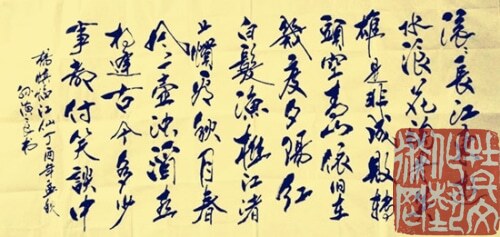 滚〻長江東逝
水浪花淘尽英
雄是非成敗轉
頭空青山依旧在
幾度夕陽紅
白髮漁樵江渚
上慣看秋月春
風一壺濁酒喜
相逢古今多少
事都付笑談中
楊慎临江仙丁酉年孟秋
书